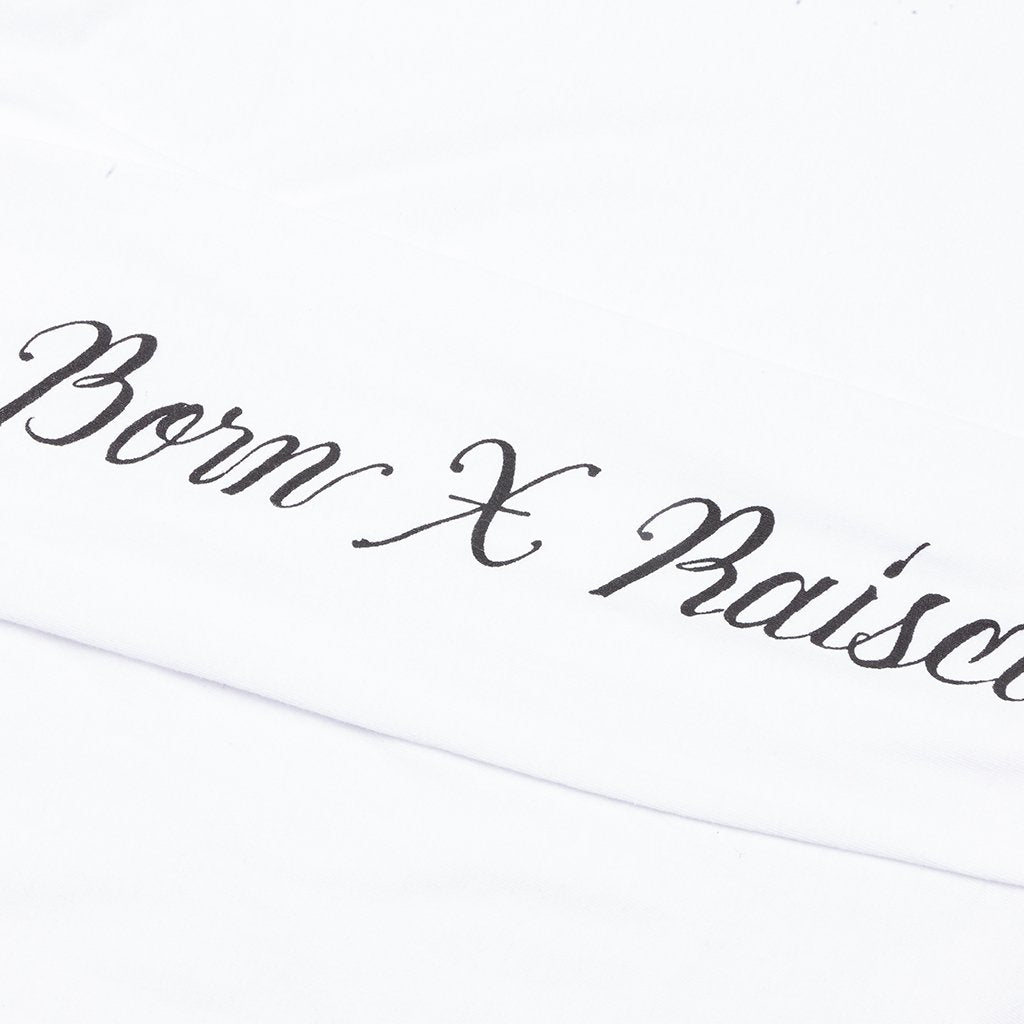 Born X Raised